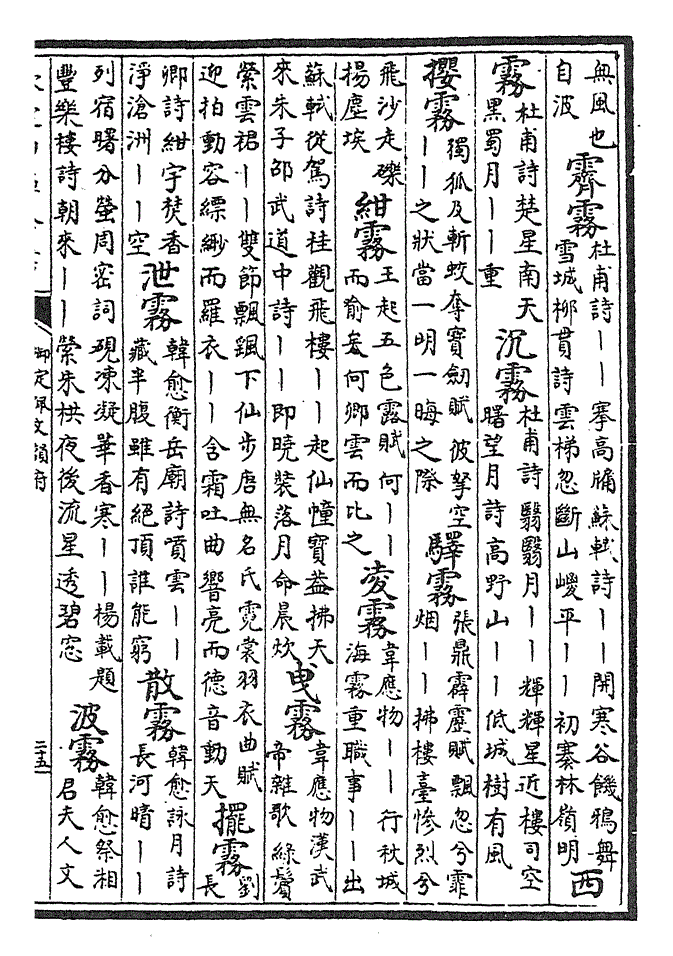 無風也
自波
霽霧
杜甫詩〡〡搴高牖蘇軾詩〡〡開寒谷饑鴉舞
雪城柳貫詩雲梯忽斷山嵏平〡〡初褰林嶺明
西
霧
杜甫詩楚星南天
黑蜀月〡〡重
沉霧
杜甫詩翳翳月〡〡輝輝星近樓司空
曙望月詩高野山〡〡低城樹有風
攖霧
獨孤及斬蛟奪寳劒賦彼拏空
〡〡之狀當一明一晦之際
驛霧
張鼎霹靂賦飄忽兮霏
烟〡〡拂樓臺慘烈兮
飛沙走礫
揚塵埃
紺霧
王起五色露賦何〡〡
而何卿雲而比之
凌霧
韋應物〡〡行秋城
海霧重職事〡〡出
蘇軾從駕詩桂觀飛樓〡〡起仙幢寳葢拂天
來朱子邵武道中詩〡〡即曉裝落月命晨炊
曵霧
韋應物漢武
帝雜歌綠鬢
縈雲裙〡〡雙節飄颻下仙步唐無名氏霓裳羽衣曲賦
迎拍動容縹緲而羅衣〡〡含霜吐曲響亮而德音動天
擺霧
劉
長
卿詩紺宇焚香
淨滄洲〡〡空
泄霧
韓愈衡岳廟詩噴雲〡〡
藏半腹雖有絕頂誰能窮
散霧
韓愈詠月詩
長河晴〡〡
列宿曙分螢周密詞硯凍凝華香寒〡〡楊載題
豐樂樓詩朝來〡〡縈朱栱夜後流星透碧窓
波霧
韓愈祭湘
君夫人文
御定佩文韻府
二五